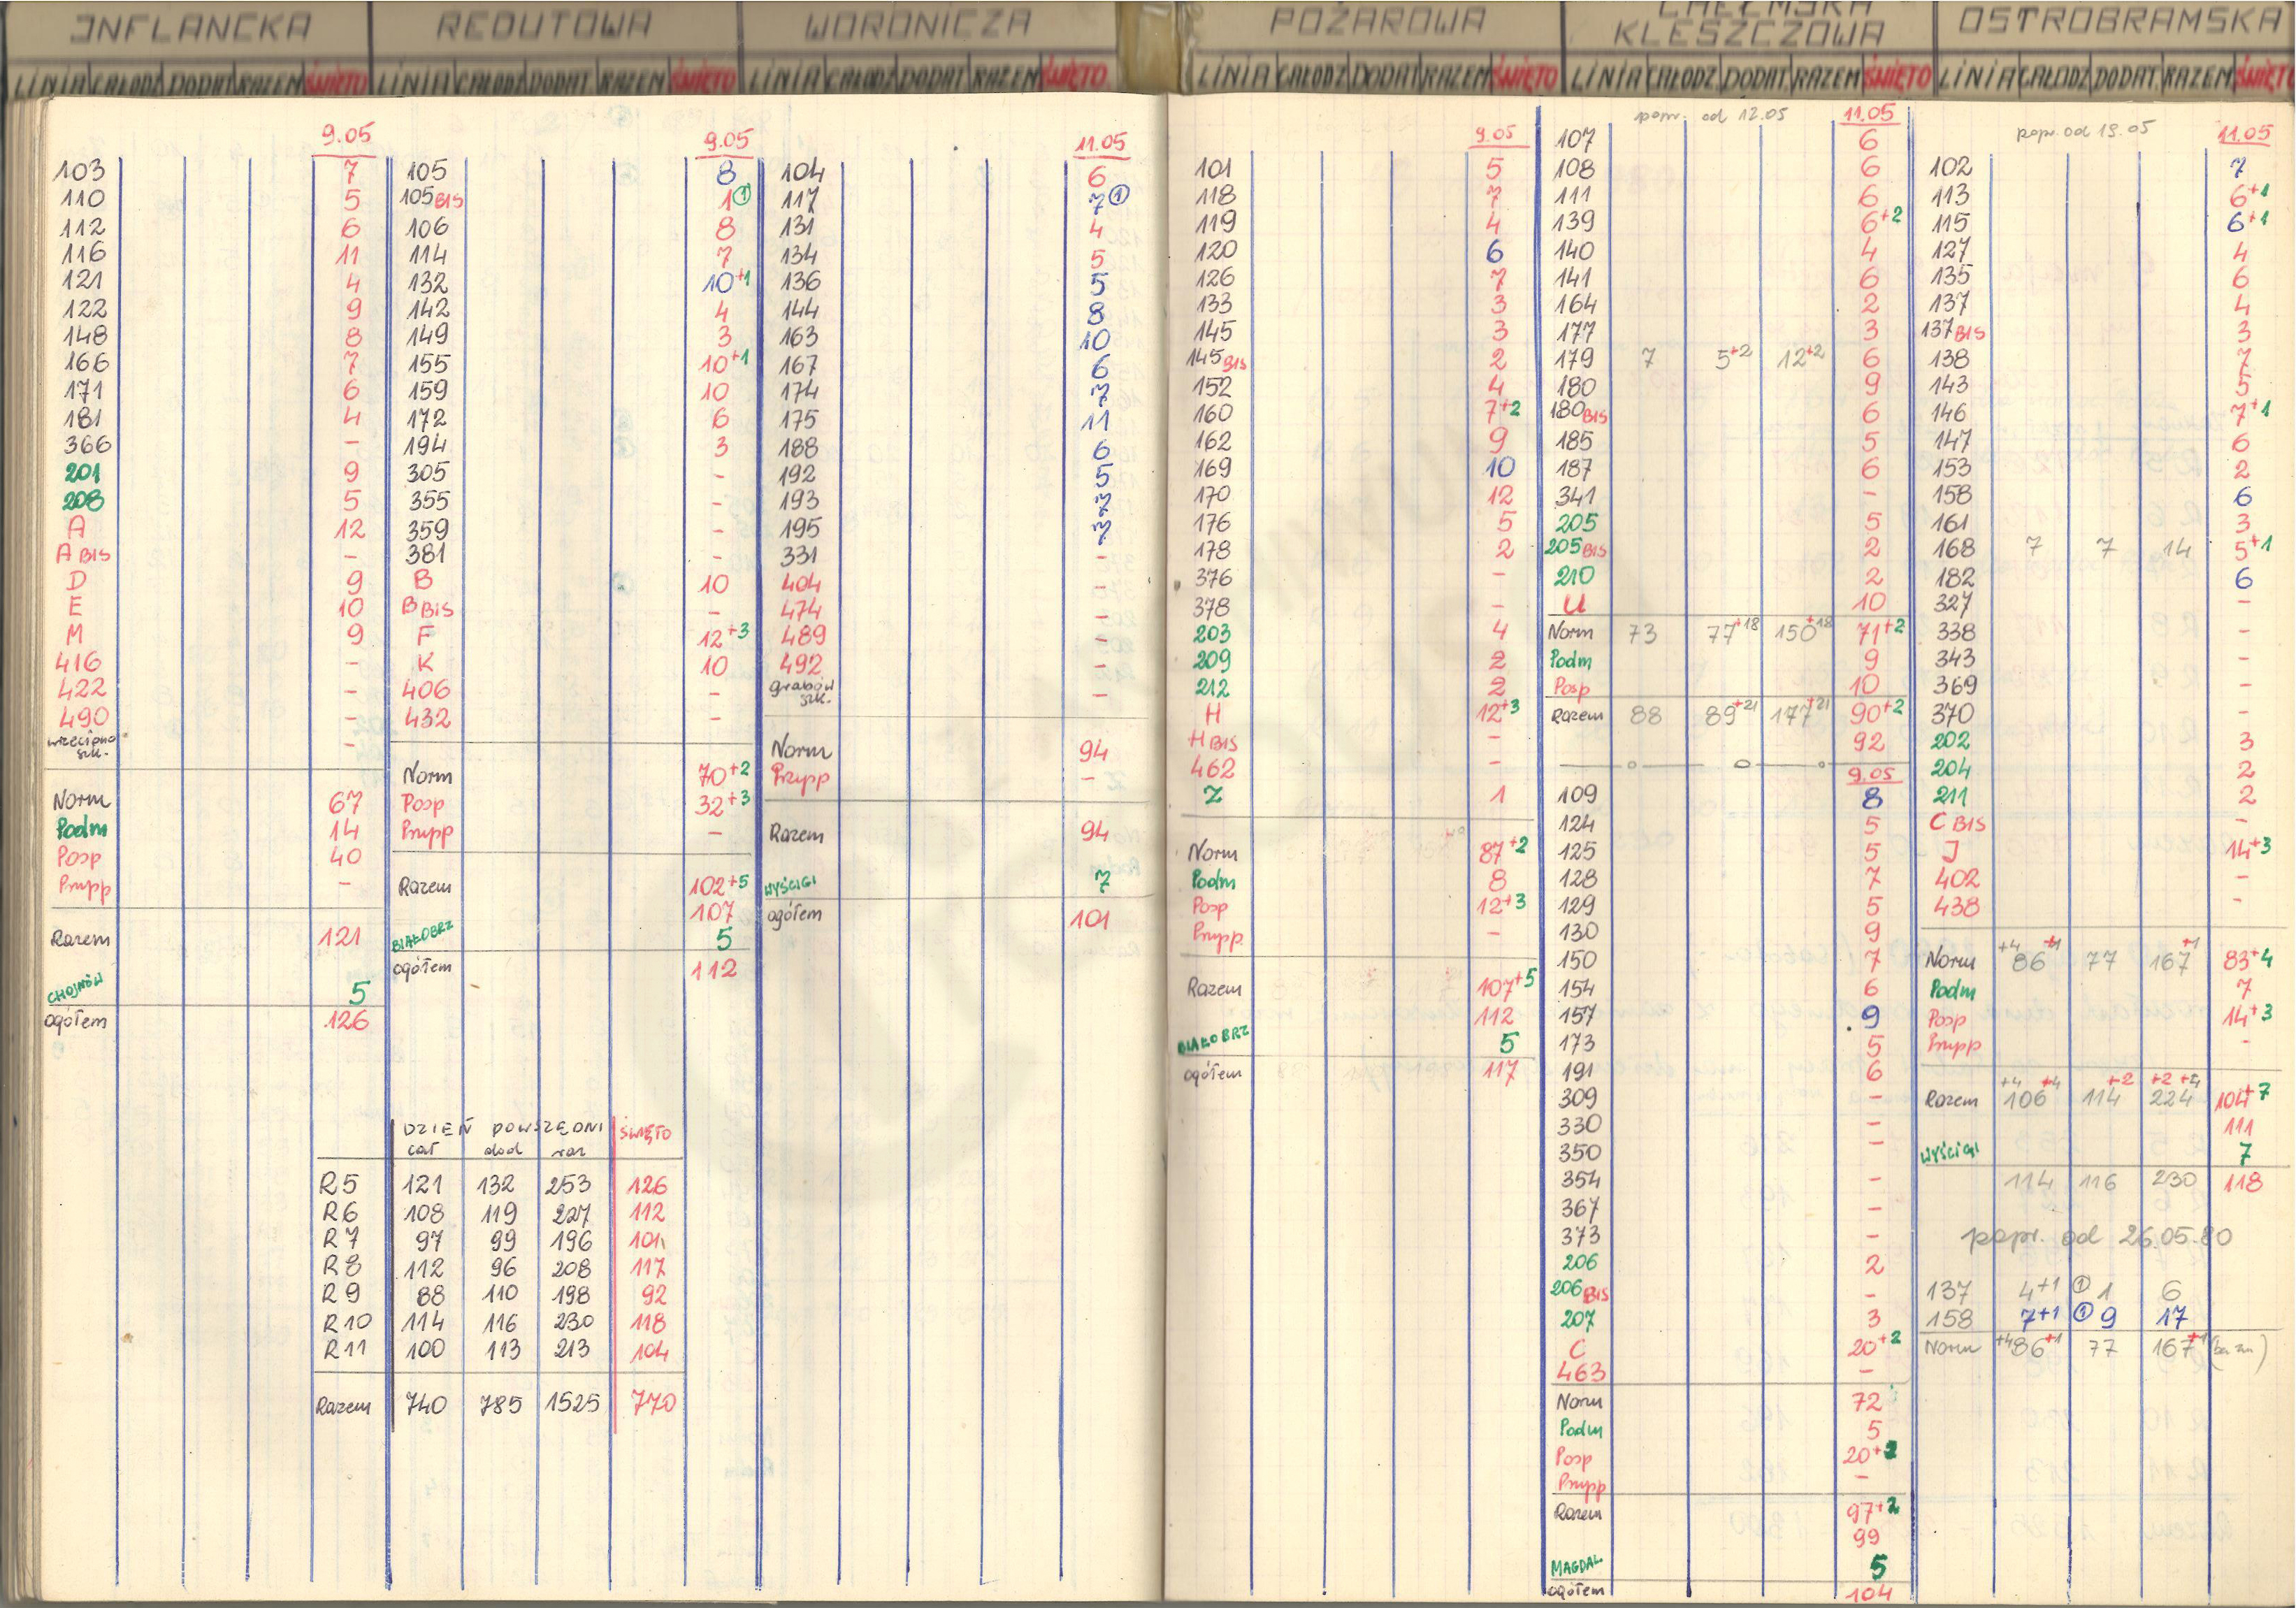 INFLANCKA
LINIA CAŁODZ DODAT. RAZEM ŚWIĘTO
9.05
103 7
110 5
112 6
116 11
121 4
122 9
148 8
166 7
171 6
181 4
366 -
201 9
208 5
A 12
A BIS -
D 9
E 10
M 9
416 -
422 -
490 -
wrzeciono szk. -
Norm 67
Podm 14
Posp 40
Przypp -
Razem 121
CHOJNÓW 5
ogółem 126
REDUTOWA
LINIA CAŁODZ DODAT. RAZEM ŚWIĘTO
9.05
105 8
105 BIS 1 ①
106 8
114 7
132 10+1
142 4
149 3
155 10+1
159 10
172 6
194 3
305 -
355 -
359 -
381 -
B 10
B BIS -
F 12+3
K 10
406 -
432 -
Norm 70+2
Posp 32+3
Przypp -
Razem 102+5
107
BIAŁOBRZ 5
ogółem 112
WORONICZA
LINIA CAŁODZ DODAT. RAZEM ŚWIĘTO
11.05
104 6
117 7 ①
131 4
134 5
136 5
144 8
163 10
167 6
174 7
175 11
188 6
192 5
193 7
195 7
331 -
404 -
474 -
489 -
492 -
grabów szk. -
Norm 94
Przypp -
Razem 94
WYŚCIGI 7
ogółem 101
DZIEŃ POWSZEDNI ŚWIĘTO
cał dod raz
R5 121 132 253 126
R6 108 119 227 112
R7 97 99 196 101
R8 112 96 208 117
R9 88 110 198 92
R10 114 116 230 118
R11 100 113 213 104
Razem 740 785 1525 770
POŻAROWA
LINIA CAŁODZ DODAT. RAZEM ŚWIĘTO
9.05
101 5
118 7
119 4
120 6
126 7
133 3
145 3
145 BIS 2
152 4
160 7+2
162 9
169 10
170 12
176 5
178 2
376 -
378 -
203 4
209 2
212 2
H 12+3
H BIS -
462 -
Z 1
Norm 87+2
Podm 8
Posp 12+3
Przypp -
Razem 107+5
112
BIAŁOBRZ 5
ogółem 117
CHEŁMSKA
KLESZCZOWA
LINIA CAŁODZ DODAT. RAZEM ŚWIĘTO
popr. od 12.05 11.05
107 6
108 6
111 6
139 6+2
140 4
141 6
164 2
177 3
179 7 5+2 12+2 6
180 9
180 BIS 6
185 5
187 6
341 -
205 5
205 BIS 2
210 2
U 10
Norm 73 77+18 150+18 71+2
Podm 9
Posp 10
Razem 88 89+21 177+21 90+2
92
9.05
109 8
124 5
125 5
128 7
129 5
130 9
150 7
154 6
157 9
173 5
191 6
309 -
330 -
350 -
354 -
367 -
373 -
206 2
206 BIS -
207 3
C 20+2
463 -
Norm 72
Podm 5
Posp 20+2
Przypp -
Razem 97+2
99
MAGDAL 5
ogółem 104
OSTROBRAMSKA
LINIA CAŁODZ DODAT. RAZEM ŚWIĘTO
popr. od 19.05 11.05
102 7
113 6+1
115 6+1
127 4
135 6
137 4
137 BIS 3
138 7
143 5
146 7+1
147 6
153 2
158 6
161 3
168 7 7 14 5+1
182 6
327 -
338 -
343 -
369 -
370 -
202 3
204 2
211 2
C BIS -
J 14+3
402 -
438 -
Norm +4 86+1 77 167+1 83+4
Podm 7
Posp 14+3
Przypp -
Razem +4 106+4 114+2 224+2+4 104+7
111
WYŚCIGI 7
114 116 230 118
popr. od 26.05.80
137 4+1 ① 1 6
158 7+1 ① 9 17
Norm +4 86+1 77 167+1 (bez zm)